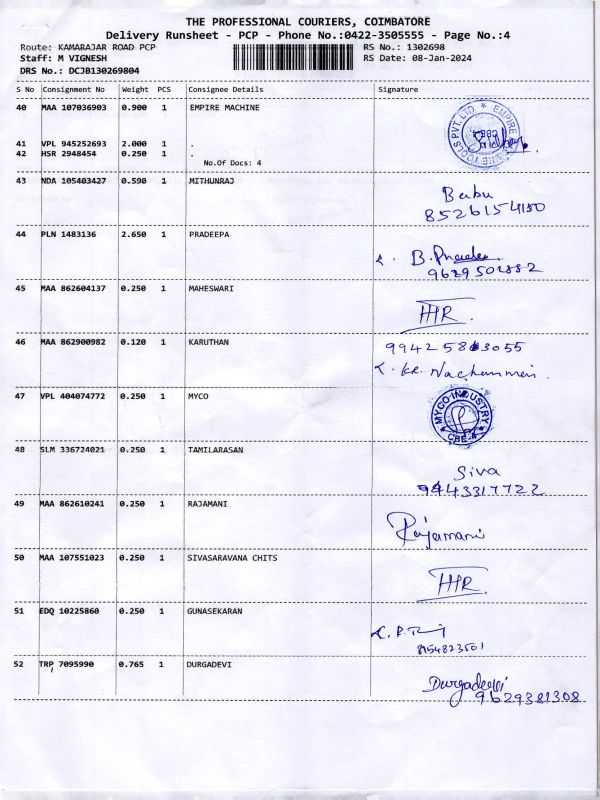 THE PROFESSIONAL COURIERS, COIMBATORE
Delivery Runsheet - PCP - Phone No.:0422-3505555 - Page No.:4
Route: KAMARAJAR ROAD PCP
RS No.: 1302698
Staff: M VIGNESH
RS Date: 08-Jan-2024
DRS No.: DCJB130269804
S No Consignment No Weight PCS Consignee Details Signature
40 MAA 107036903 0.900 1 EMPIRE MACHINE
EMPIRE TOOLS PVT. LTD
41 VPL 945252693 2.000 1 .
42 HSR 2948454 0.250 1 .
No.Of Docs: 4
43 NDA 105403427 0.590 1 MITHUNRAJ
Babu
8526154180
44 PLN 1483136 2.650 1 PRADEEPA
B.
9629502882
45 MAA 862604137 0.250 1 MAHESWARI
HR
46 MAA 862900982 0.120 1 KARUTHAN
KR. Nachammai
47 VPL 404074772 0.250 1 MYCO
MYCO INDUSTRY
CBE-4
48 SLM 336724021 0.250 1 TAMILARASAN
Siva
9443317722
49 MAA 862610241 0.250 1 RAJAMANI
Rajamani
50 MAA 107551023 0.250 1 SIVASARAVANA CHITS
HR
51 EDQ 10225860 0.250 1 GUNASEKARAN
8754823501
52 TRP 7095990 0.765 1 DURGADEVI
Durgadevi
9629381308